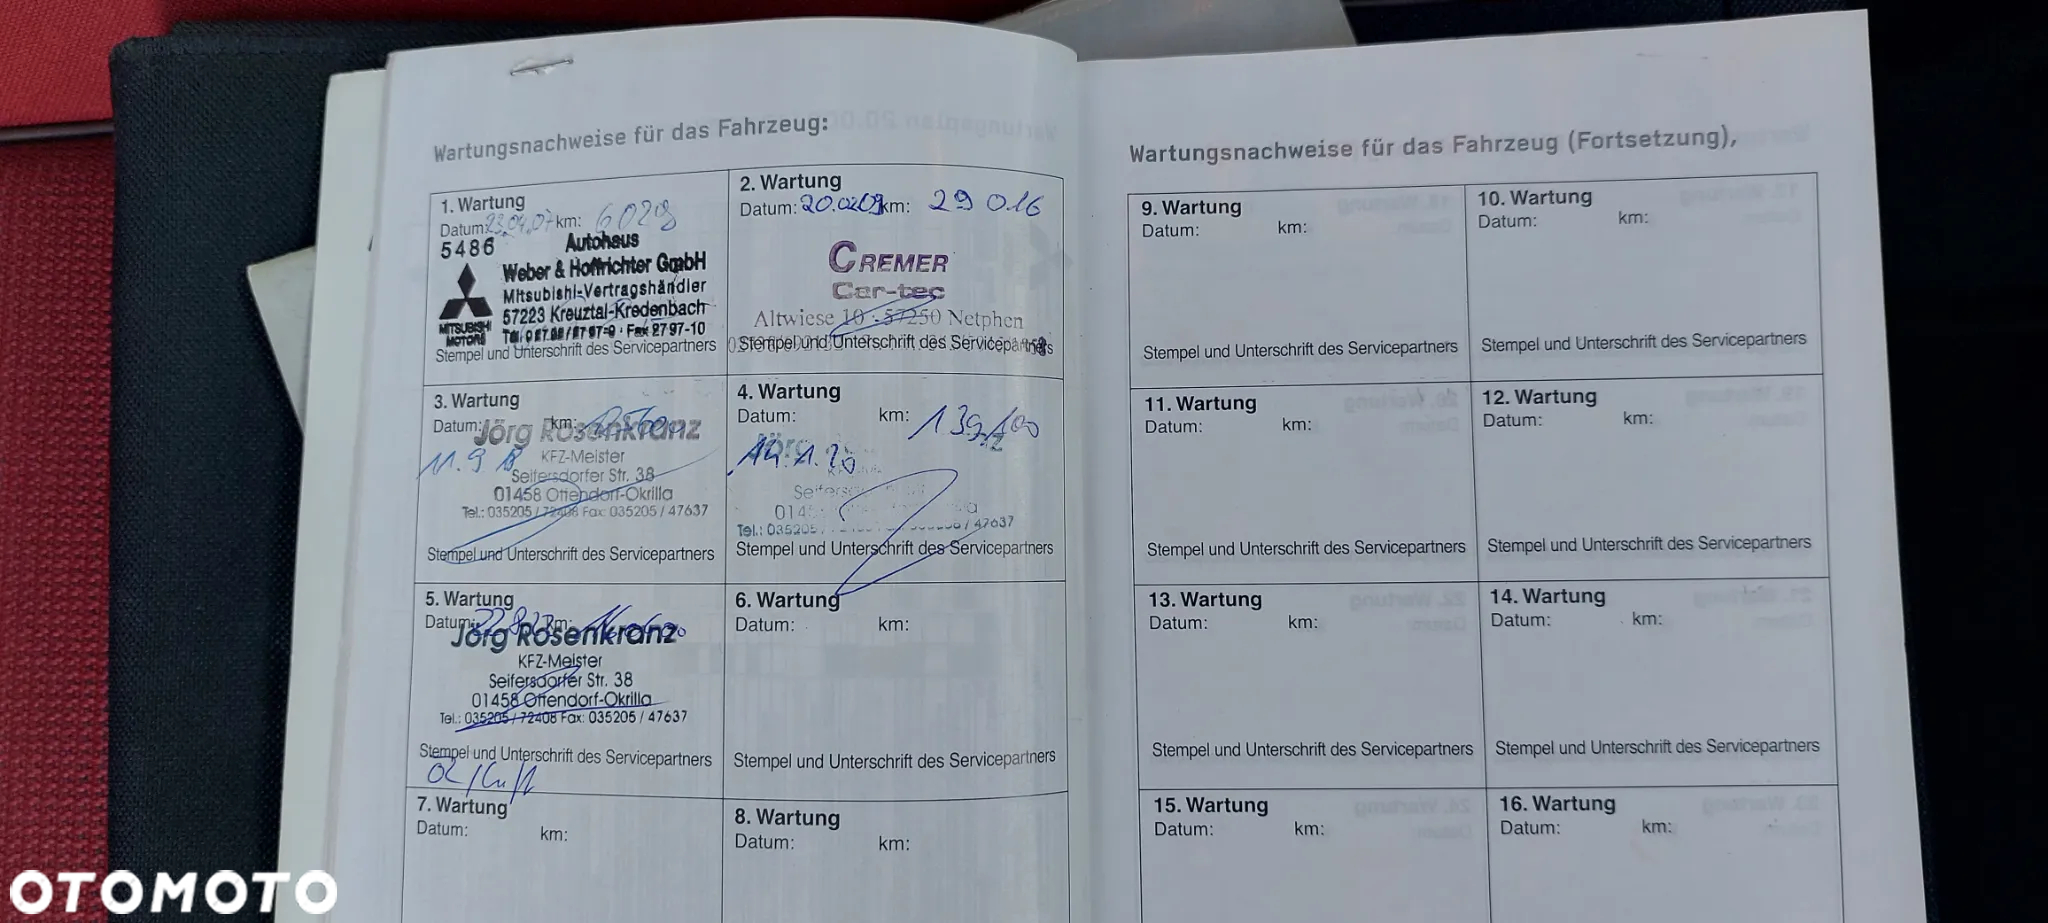 Wartungsnachweise für das Fahrzeug:
1. Wartung
Datum: 23.04.07 km: 6029
5486
Autohaus
Weber & Hoffrichter GmbH
Mitsubishi-Vertragshändler
57223 Kreuztal-Kredenbach
MITSUBISHI
MOTORS
Fax 27 97-10
Stempel und Unterschrift des Servicepartners
2. Wartung
Datum: 20.02.09 km: 29 016
CREMER
Car-tec
Altwiese 10 · 57250 Netphen
Stempel und Unterschrift des Servicepartners
3. Wartung
Datum: km:
Jörg Rosenkranz
11.9
KFZ-Meister
Seifersdorfer Str. 38
01458 Ottendorf-Okrilla
Tel.: 035205 / 72408 Fax: 035205 / 47637
Stempel und Unterschrift des Servicepartners
4. Wartung
Datum: km: 139100
Jörg
14.1.20
Tel.: 035205 / 47637
Stempel und Unterschrift des Servicepartners
5. Wartung
Datum: km:
Jörg Rosenkranz
KFZ-Meister
Seifersdorfer Str. 38
01458 Ottendorf-Okrilla
Tel.: 035205 / 72408 Fax: 035205 / 47637
Stempel und Unterschrift des Servicepartners
6. Wartung
Datum: km:
Stempel und Unterschrift des Servicepartners
7. Wartung
Datum: km:
8. Wartung
Datum: km:
Wartungsnachweise für das Fahrzeug (Fortsetzung),
9. Wartung
Datum: km:
Stempel und Unterschrift des Servicepartners
10. Wartung
Datum: km:
Stempel und Unterschrift des Servicepartners
11. Wartung
Datum: km:
Stempel und Unterschrift des Servicepartners
12. Wartung
Datum: km:
Stempel und Unterschrift des Servicepartners
13. Wartung
Datum: km:
Stempel und Unterschrift des Servicepartners
14. Wartung
Datum: km:
Stempel und Unterschrift des Servicepartners
15. Wartung
Datum: km:
16. Wartung
Datum: km:
OTOMOTO